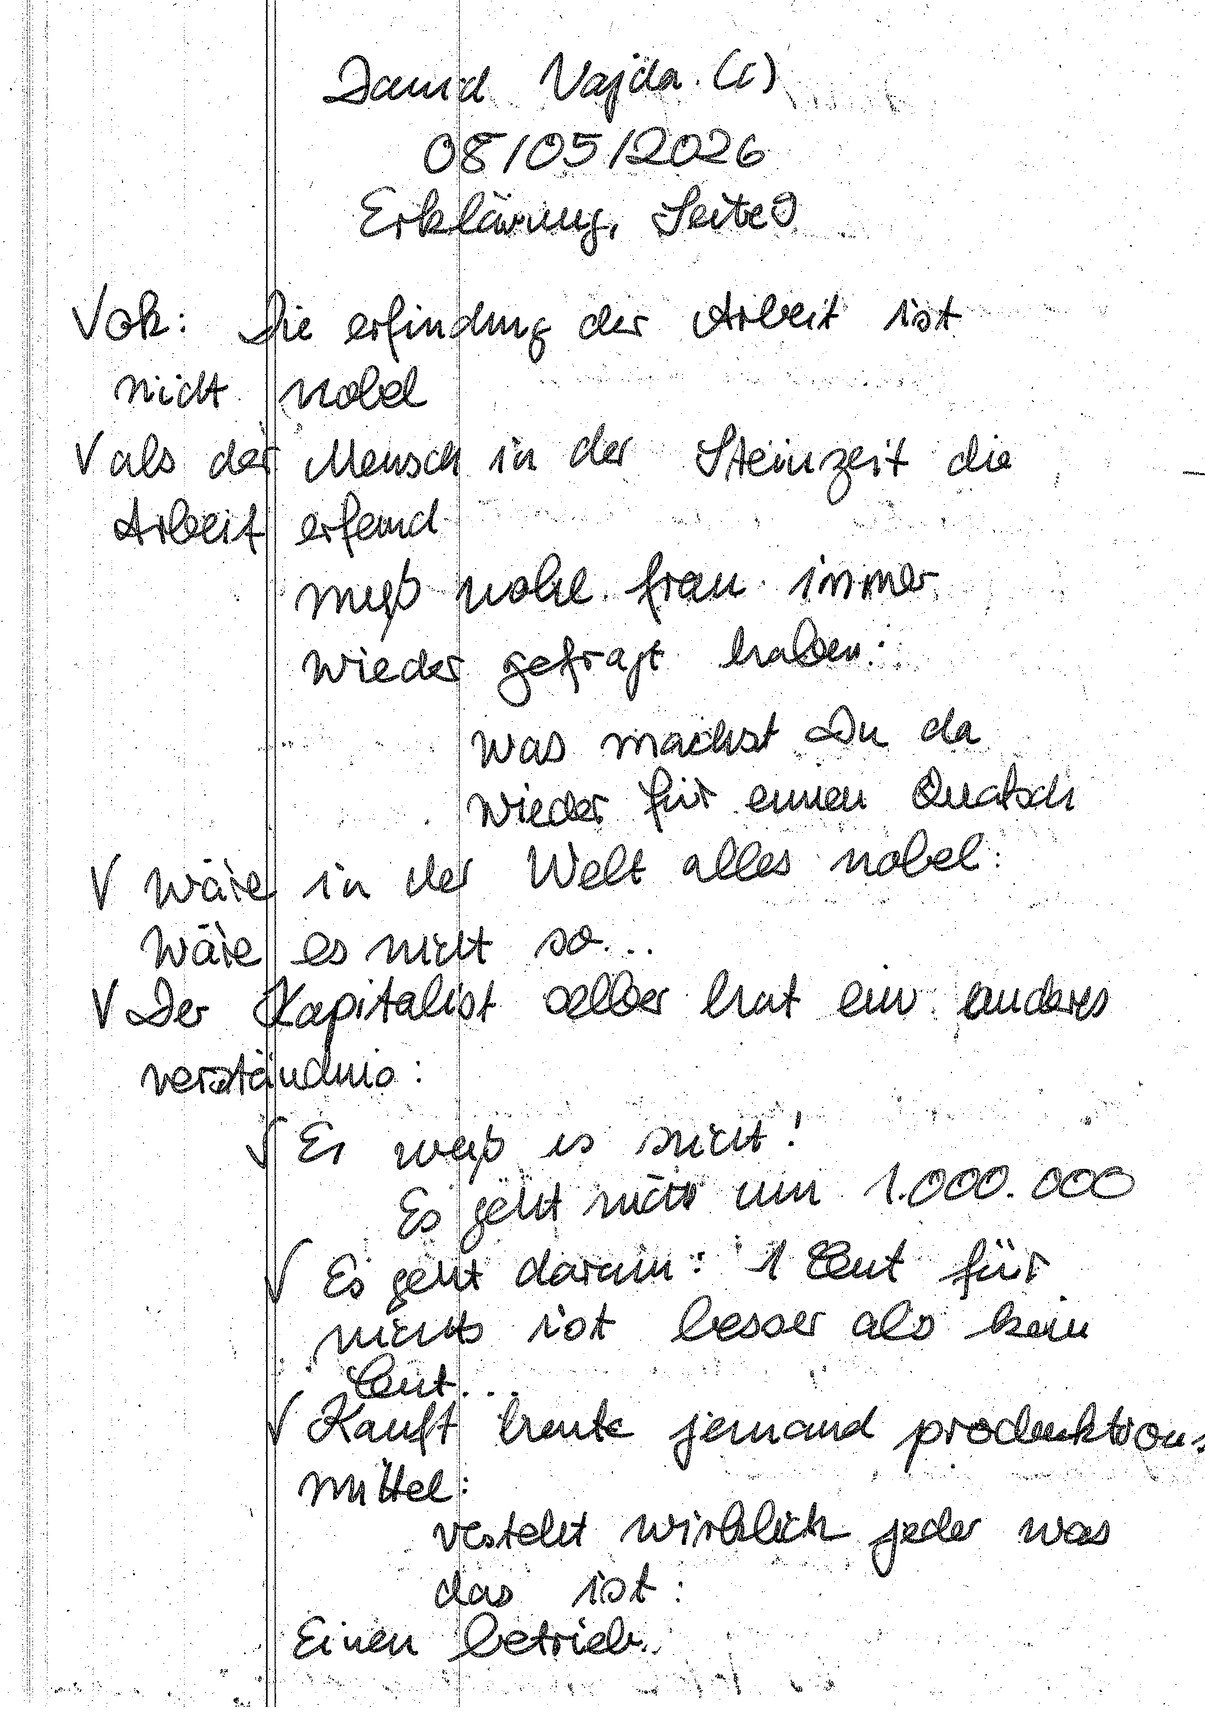 David Vajda (C)
08/05/2026
Erklärung, Seite 9
√ ok: Die erfindung der Arbeit ist
nicht nobel
√ als der Mensch in der Steinzeit die
Arbeit erfand
muß nobel frau immer
wieder gefragt haben:
was machst Du da
wieder für einen Quatsch
√ wäre in der Welt alles nobel:
wäre es nicht so...
√ Der Kapitalist selber hat ein anderes
verständnis:
√ Er weiß es nicht!
Es geht nicht um 1.000.000
√ Es geht darum: 1 Cent für
nichts ist besser als kein
Cent...
√ Kauft heute jemand produktions
mittel:
versteht wirklich jeder was
das ist:
Einen betrieb.